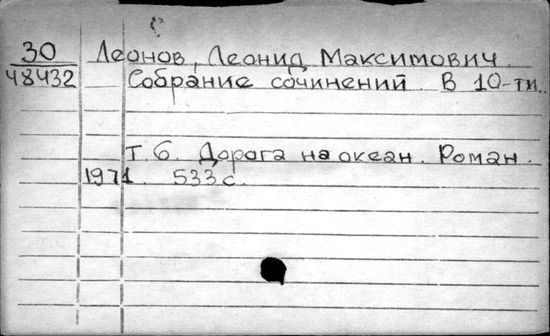 30 Леонов, Леонид Максимович.
48432 Собрание сочинений В 10-ти.
Т 6. Дорога на океан. Роман.
1971. 533 с.